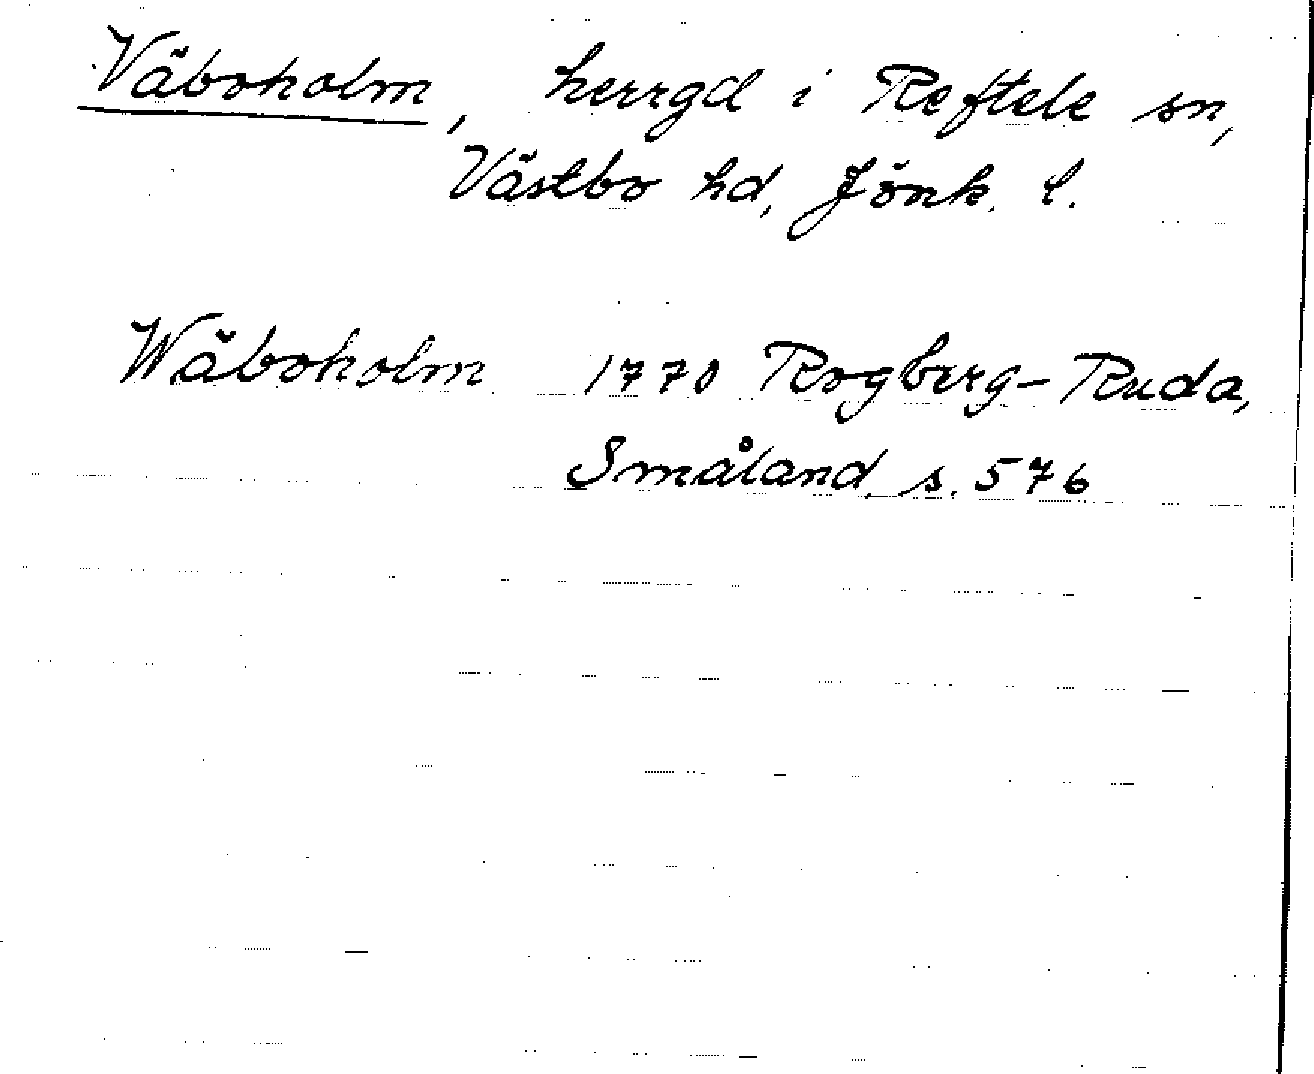 Väboholm, herrgd i Reftele sn,
Västbo hd, Jönk. l.
Wäboholm 1770 Rogberg-Ruda,
Småland s. 576